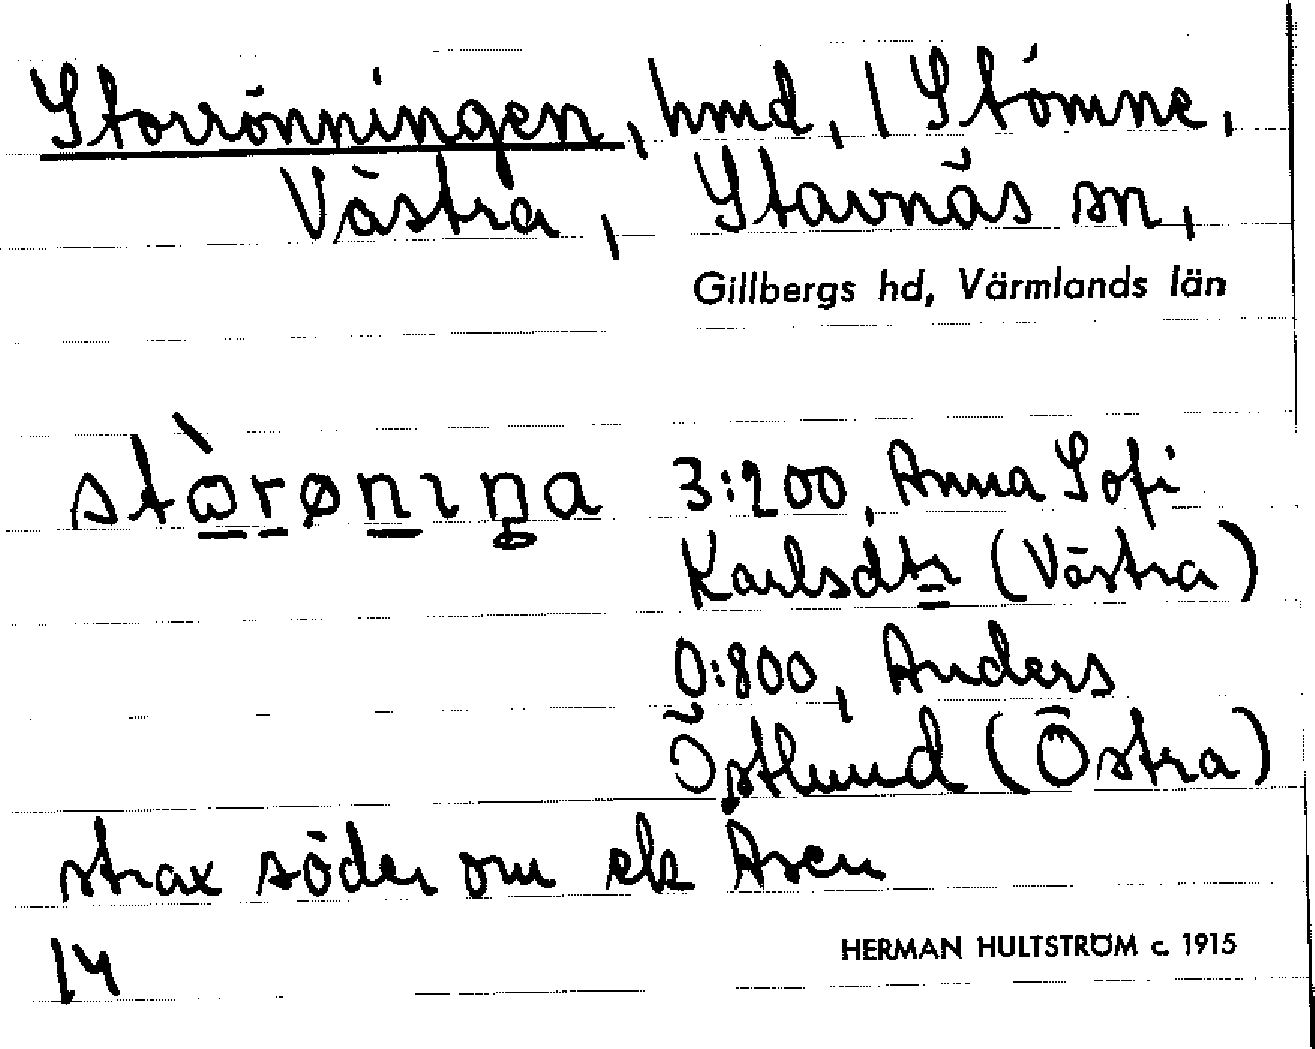 Storrönningen, hmd, 1 Stömne,
Västra, Stavnäs sn,
Gillbergs hd, Värmlands län
3:200, Anna Sofi
Karlsdtr (Västra)
0:800, Anders
Östlund (Östra)
strax söder om
14
HERMAN HULTSTRÖM c. 1915